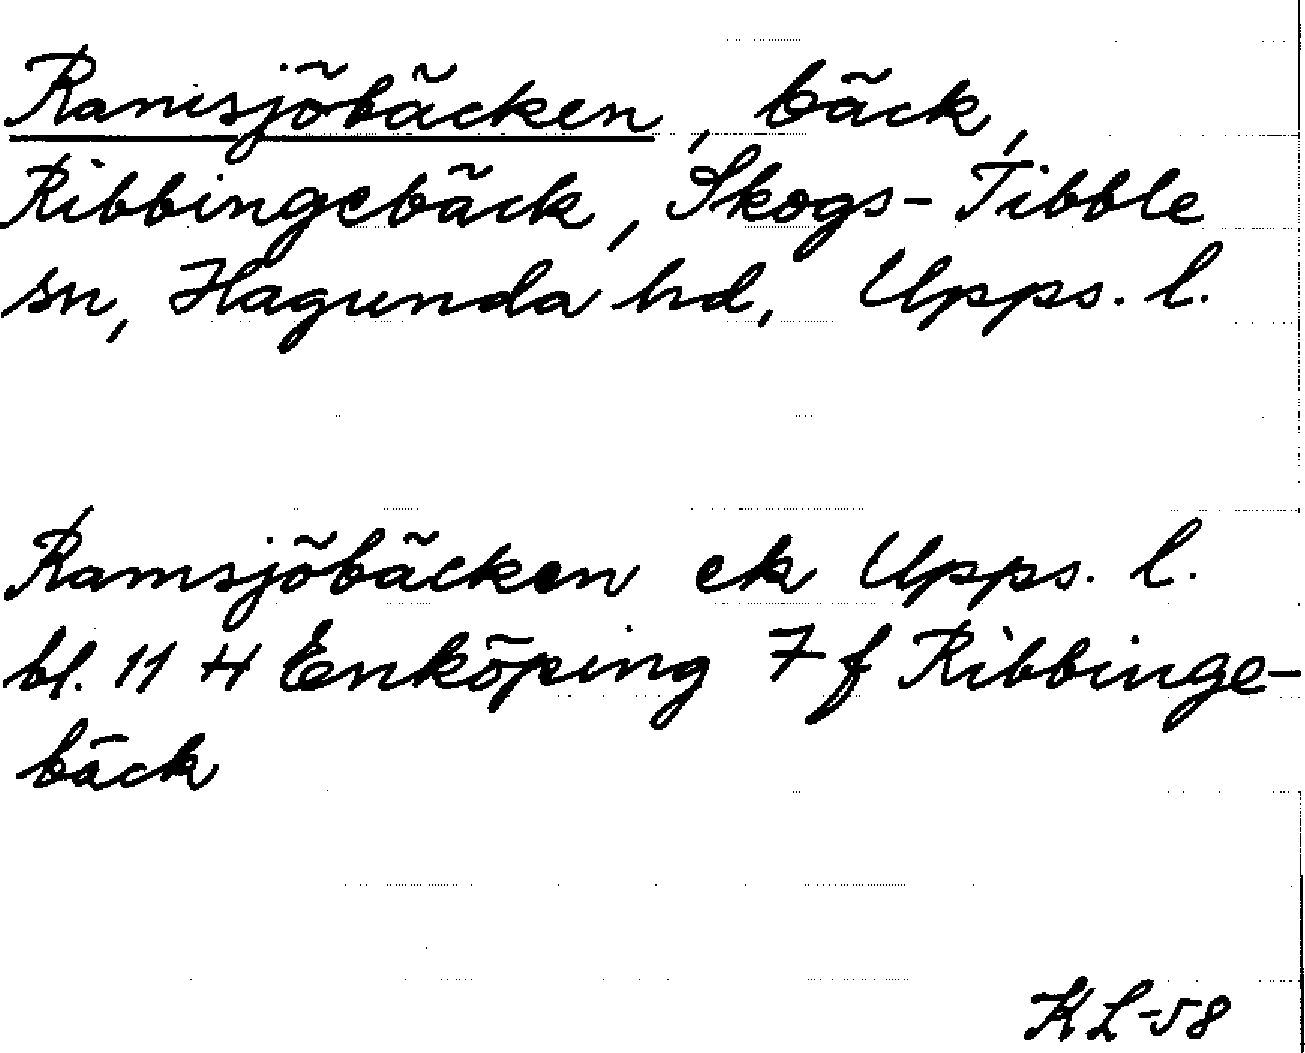 Ramsjöbäcken, bäck,
Ribbingebäck, Skogs-Tibble
sn, Hagunda hd, Upps. l.
Ramsjöbäcken ek Upps. l.
bl. 11 H Enköping 7 f Ribbinge-
bäck
KL-58